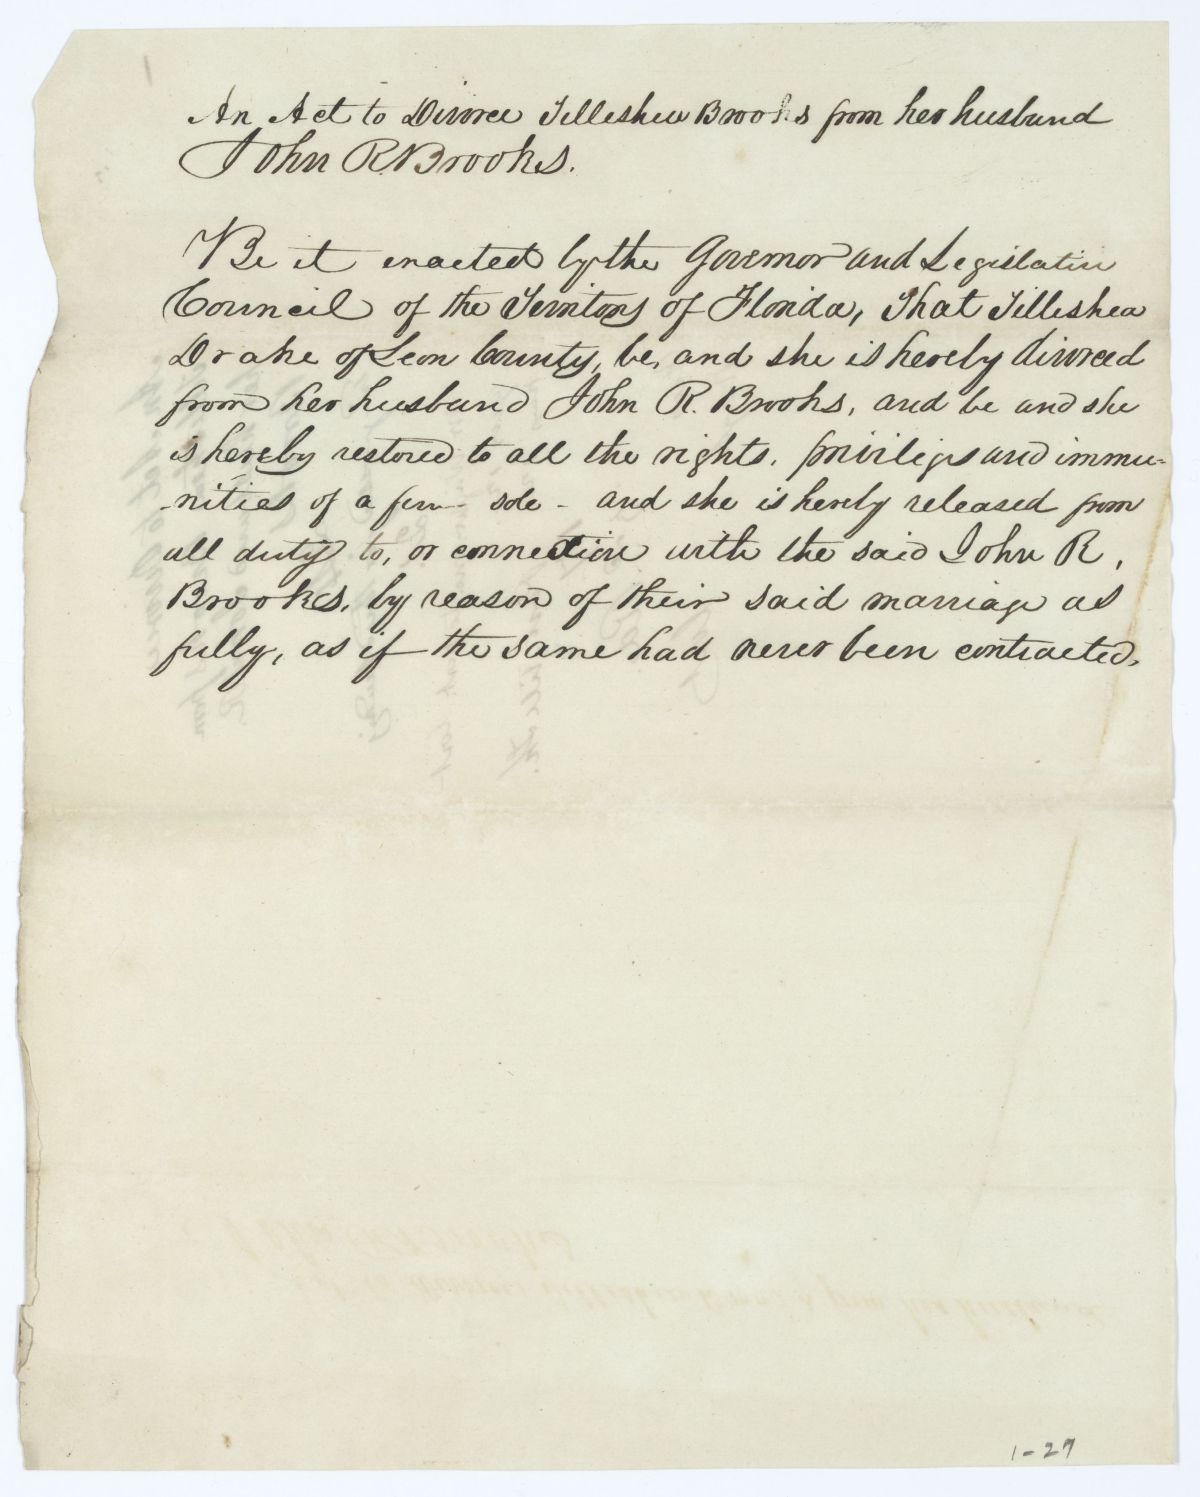 An Act to Divorce Tilleshea Brooks from her husband
John R. Brooks.
Be it enacted by the Governor and Legislative
Council of the Territory of Florida, That Tilleshea
Drake of Leon County, be, and she is hereby divorced
from her husband John R. Brooks, and be and she
is hereby restored to all the rights, privileges and immu-
-nities of a fem sole - and she is hereby released from
all duty to, or connection with the said John R.
Brooks, by reason of their said marriage as
fully, as if the same had never been contracted.
1-27